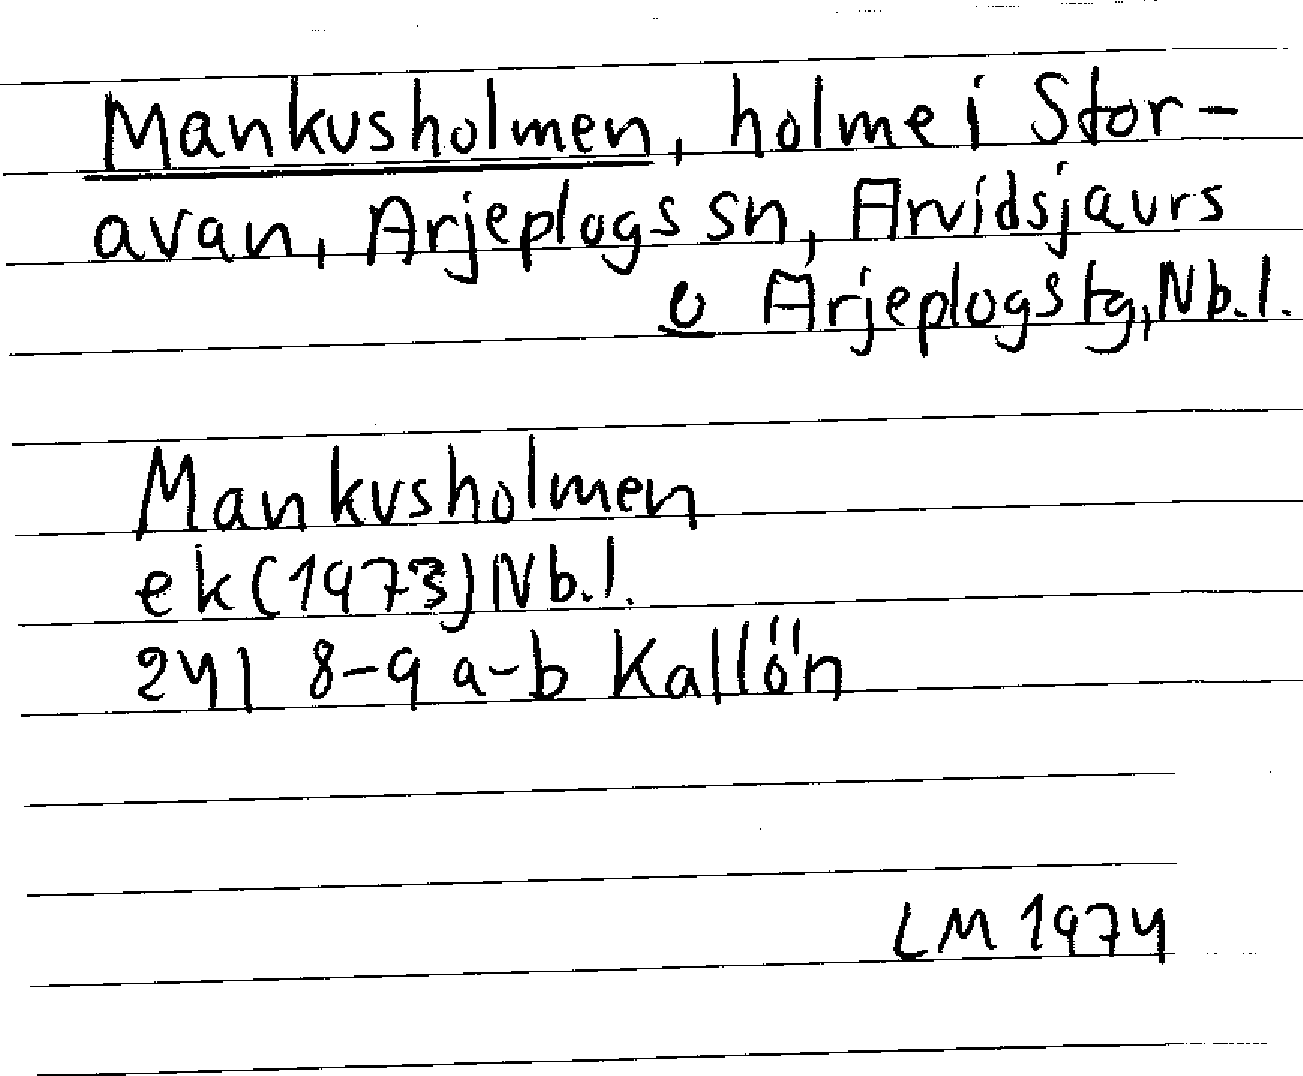 Mankusholmen, holme i Stor-
avan, Arjeplogs sn, Arvidsjaurs
o Arjeplogs tg, Nb.l.
Mankusholmen
ek (1973) Nb.l.
24I 8-9 a-b Kallön
LM 1974